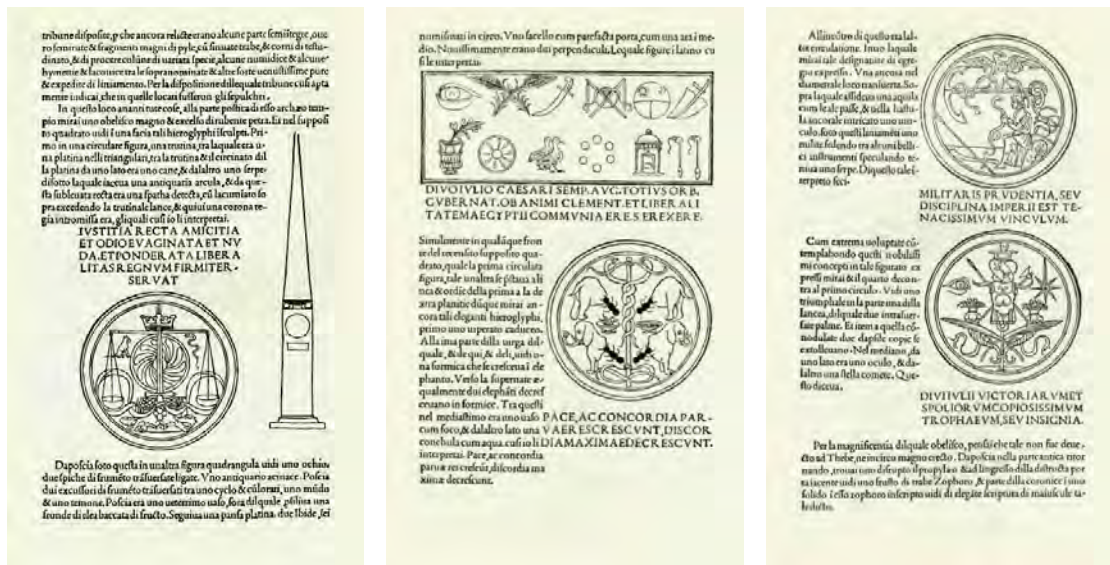 tribune disposite, p che ancora relicte erano alcune parte semistegre, oue
ro seminate & fragmenti magni di pyle, cū sinuate trabe, & corni di testu-
dinato, & di procere colūne di uariata specie, alcune numidice & alcune
hymettie & laconice tra le sopranominate & altre forte uenustissime pure
& expedite di liniamento. Per la dispositione dillequale tribune cusi apta
mente indicai, che in quelle locati fusseron gli sepulchri.
In questo loco ananti tute cose, alla parte postica di esso archæo tem-
pio mirai uno obelisco magno & excelso di rubente petra. Et nel supposi
to quadrato uidi i una facia tali hieroglyphi isculpti. Pri-
mo in una circulare figura, una trutina, tra laquale era u-
na platina nelli triangulari, tra la trutina & il circinato dil
la platina da uno lato era uno cane, & dalaltro uno serpe
disotto laquale iaceua una antiquaria arcula, & da que-
sta subleuata recta era una spatha detecta, cū lacumiato so
pra excedendo la trutinale lance, & quiui una corona re-
gia intromissa era, gliquali cusi io li interpretai.
IVSTITIA RECTA AMICITIA
ET ODIO EVAGINATA ET NV
DA, ET PONDERATA LIBERA
LITAS REGNVM FIRMITER
SERVAT
Daposcia soto questa in unaltra figura quadrangula uidi uno ochio,
due spiche di frumēto trāsuersate ligate. Vno antiquario acinace. Poscia
dui excussori di frumēto trāsuersati tra uno cyclo & cūlorati, uno mūdo
& uno temone. Poscia era uno ueterrimo uaso, fora dilquale psiliua una
fronde di olea baccata di fructo. Seguiua una pansa platina. due Ibide, sei
numismati in circo. Vno sacello cum patefacta porta, cum una ara i me-
dio. Nouissimamente erano dui perpendiculi. Lequale figure i latino cu
si le interpretai.
DIVO IVLIO CAESARI SEMP. AVG. TOTIVS ORB.
GVBERNAT. OB ANIMI CLEMENT. ET LIBERALI
TATEM AEGYPTII COMMVNI AERE S. EREXERE.
Similmente in qualūque fron
te del recensito supposito qua-
drato, quale la prima circulata
figura, tale unaltra se pstaua a li
nea & ordie della prima a la de
xtra planitie dūque mirai an-
cora tali eleganti hieroglyphi,
primo uno uiperato caduceo.
Alla ima parte dilla uirga dil-
quale, & de qui, & deli, uidi u-
na formica che se cresceua i ele
phanto. Verso la supernate æ-
qualmente dui elephāti decres
ceuano in formice. Tra questi
nel mediastimo era uno uaso
cum foco, & dalaltro lato una
conchula cum aqua. cusi io li
interpretai. Pace, ac concordia
paruæ res crescūt, discordia ma
ximæ decrescunt.
PACE, AC CONCORDIA PAR-
VAE RES CRESCVNT, DISCOR
DIA MAXIMAE DECRESCVNT.
Allincōtro di questo era lal-
tra circulatione. Intro laquale
mirai tale designature di egre-
gio expresso. Vna ancora nel
diametrale loco transuersa. So-
pra laquale assideua una aquila
cum le ale passe, & nella hastu-
la ancorale intricato uno uin-
culo. soto questi liniamēti uno
milite sedendo tra alcuni belli-
ci instrumenti speculando te-
niua uno serpe. Di questo tale i-
terpreto feci.
MILITARIS PRVDENTIA, SEV
DISCIPLINA IMPERII EST TE-
NACISSIMVM VINCVLVM.
Cum extrema uoluptate cō-
templabondo questi nobilissi
mi concepti in tale figurato ex
pressi mirai & il quarto decon-
tra al primo circulo. Vidi uno
triumphale in la parte una dilla
lancea, dilquale due intrasuer-
sate palme. Et item a quella cō-
nodulate due dapsile copie se
extolleuano. Nel mediano, da
uno lato era uno oculo, & da-
laltro una stella comete. Que-
sto diceua.
DIVI IVLII VICTORIARVM ET
SPOLIORVM COPIOSISSIMVM
TROPHAEVM, SEV INSIGNIA.
Per la magnificentia dilquale obelisco, pensai che tale non fue deue-
cto ad Thebe, ne in circo magno erecto. Daposcia nella parte antica ritor
nando, trouai uno disrupto il propylæo & ad lingresso dilla distructa por
ta iacente uidi uno frusto di trabe Zophoro, & parte dilla coronice i uno
solido. I esso zophoro inscripto uidi di elegāte scriptura di maiuscule ta-
le dicto.